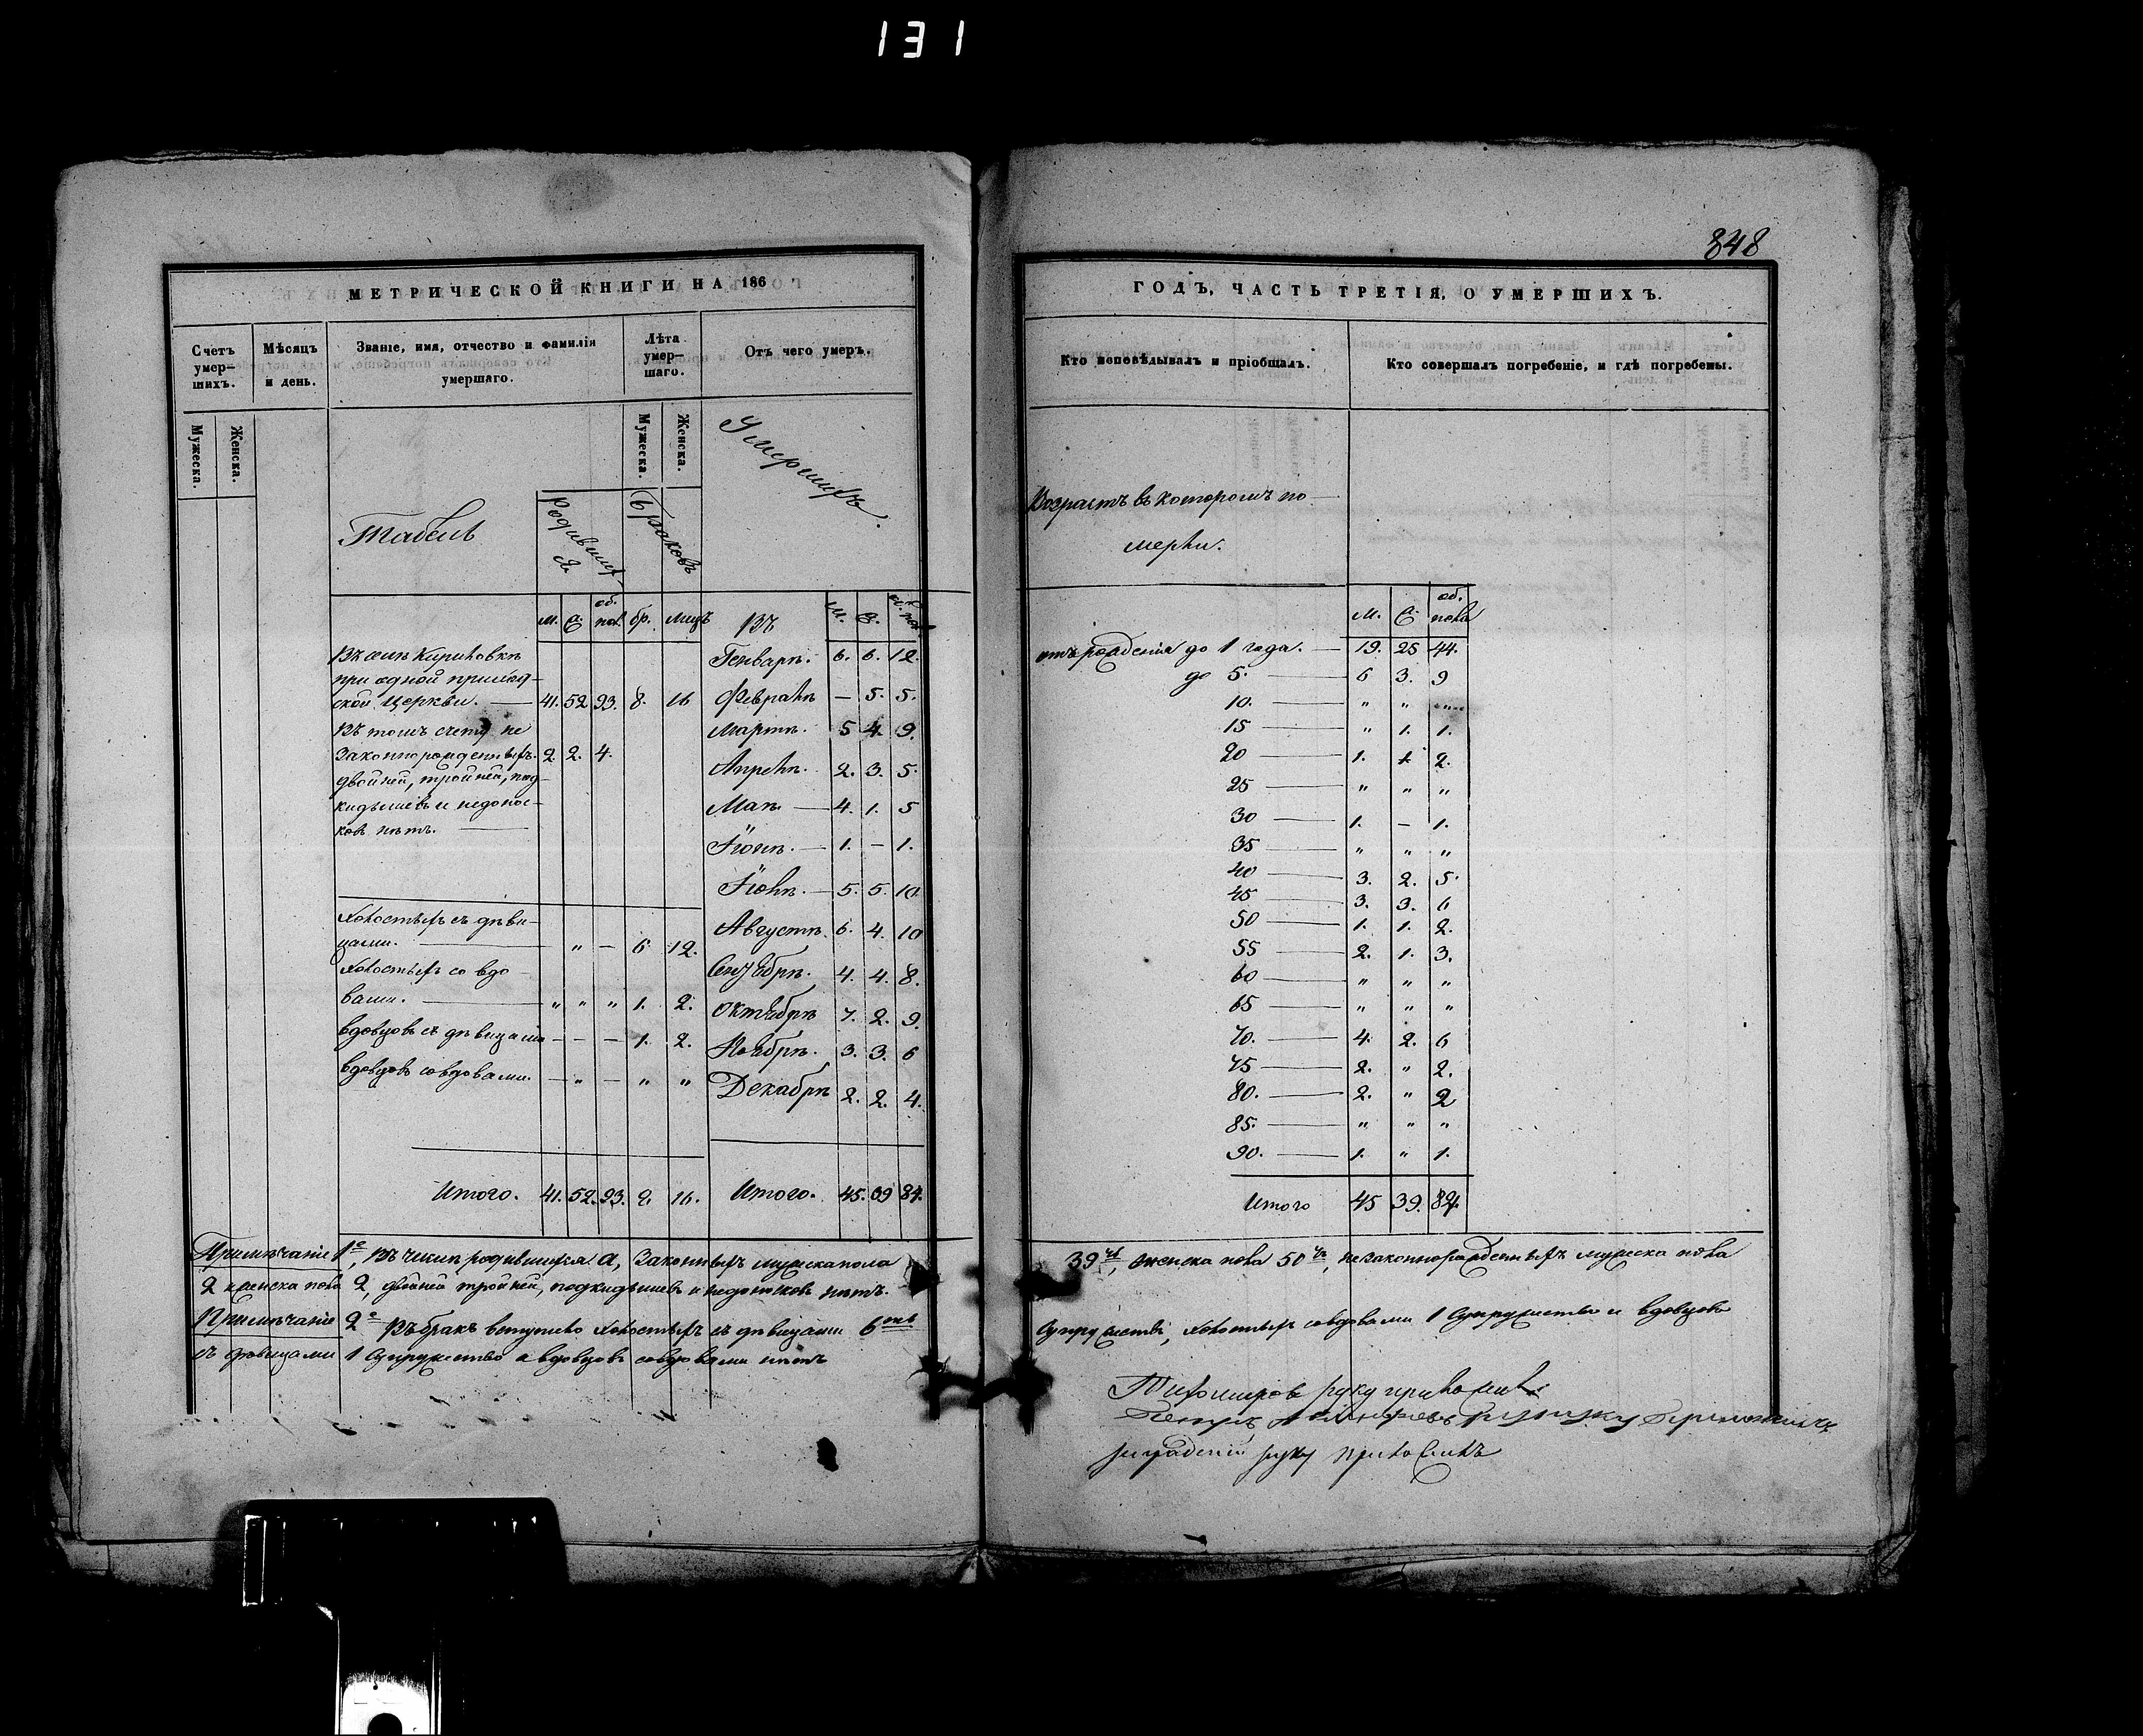 131
848
МЕТРИЧЕСКОЙ КНИГИ НА 186
Счетъ умер-шихъ.
Мѣсяцъ и день.
Званіе, имя, отчество и фамилія умершаго.
Лѣта умер-шаго.
Отъ чего умеръ.
Мужеска.
Женска.
Мужеска.
Женска.
Табель
Родившихся
Браковъ
Умершихъ.
м. ж. об. пол. бр. лицъ
Въ м. ж. об. пол.
Въ селѣ Кириловкѣ
при одной приход-
ской церкви. — 41. 52. 93. 8. 16
Въ томъ счету не
законнорожденныхъ. 2. 2. 4.
двойней, тройней, под-
кидышевъ и недонос-
ковъ нѣтъ. —
Холостыхъ съ дѣви-
цами. — " — 6 12.
Холостыхъ со вдо-
вами. — " " " 1. 2.
вдовцовъ съ дѣвицами — — — 1. 2.
вдовцовъ совдовами. — " — " "
Итого. 41. 52. 93. 8. 16.
Генварѣ. 6. 6. 12.
Февралѣ — 5. 5.
Мартѣ. 5 4. 9.
Апрѣлѣ. 2. 3. 5.
Маѣ — 4. 1. 5
Іюнѣ. — 1. — 1.
Іюлѣ. — 5. 5. 10.
Августѣ. 6. 4. 10
Сентябрѣ. 4. 4. 8.
Октябрѣ 7. 2. 9.
Ноябрѣ. 3. 3. 6
Декабрѣ 2. 2. 4.
Итого. 45. 39 84.
Примѣчаніе 1е, Въ числѣ родившихся а, Законныхъ мужеска пола
2 женска пола 2, двойней тройней, подкидышевъ и недоносковъ нѣтъ.
Примѣчаніе 2е Въ бракъ вступило холостыхъ съ дѣвицами 6ть
съ дѣвицами 1 супружество а вдовцовъ совдовами нѣтъ
ГОДЪ, ЧАСТЬ ТРЕТІЯ, О УМЕРШИХЪ.
Кто исповѣдывалъ и пріобщалъ.
Кто совершалъ погребеніе, и гдѣ погребены.
Возрастъ въ которомъ по-
мерли.
м. ж. об. пола
отъ рожденія до 1 года. — 19. 25 44.
до 5. — 6 3. 9
10. — " "
15 — " 1. 1.
20 — 1. 1. 2.
25 — " " "
30 — 1. — 1.
35 — " " "
40 — 3. 2. 5.
45 — 3. 3. 6
50 — 1. 1. 2.
55 — 2. 1. 3.
60 — " " "
65 — " " "
70. — 4. 2. 6
75 — 2. " 2.
80. — 2. " 2
85. — " " "
90. — 1. " 1.
Итого 45 39. 84.
39ть, женска пола 50ть, незаконнорожденныхъ мужеска пола
супружествъ, холостыхъ совдовами 1 супружество и вдовцовъ
Тихомировъ руку приложилъ
руку приложилъ
руку приложилъ